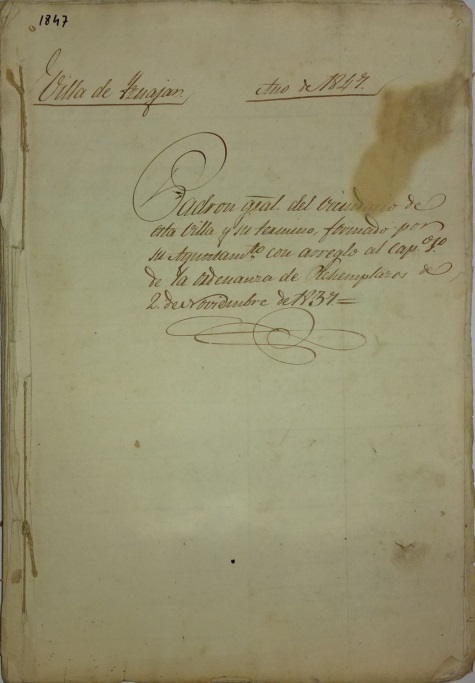 1847
Villa de Iznajar Año de 1847.
Padron gral. del vecindario de
esta Villa y su termino, formado por
su Ayuntamto. con arreglo al capo. 1o.
de la ordenanza de Rehemplazos de
2. de Noviembre de 1837=